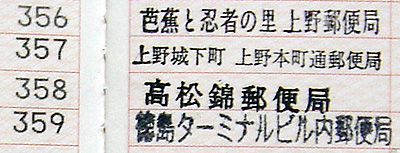 356 芭蕉と忍者の里 上野郵便局
357 上野城下町 上野本町通郵便局
358 高松錦郵便局
359 徳島ターミナルビル内郵便局